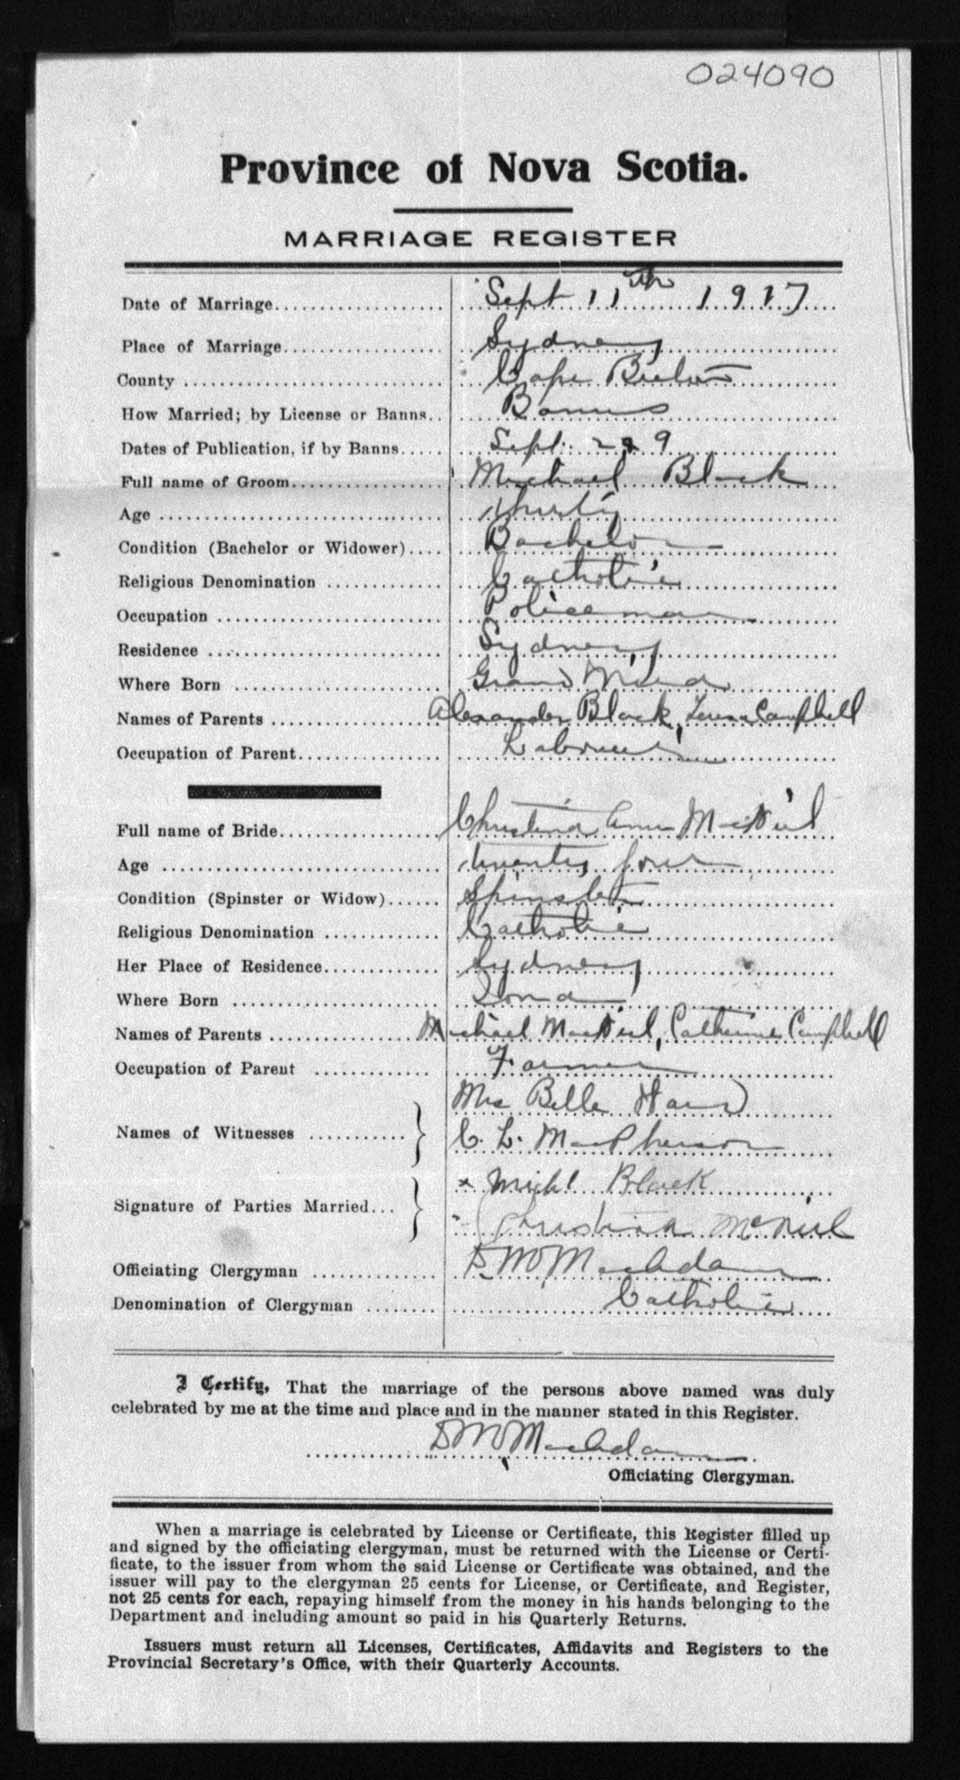 024090
Province of Nova Scotia.
MARRIAGE REGISTER
Date of Marriage Sept 11th 1917
Place of Marriage Sydney
County Cape Breton
How Married; by License or Banns Banns
Dates of Publication, if by Banns Sept. 2 & 9
Full name of Groom Michael Black
Age thirty
Condition (Bachelor or Widower) Bachelor
Religious Denomination Catholic
Occupation Policeman
Residence Sydney
Where Born Grand Mira
Names of Parents Alexander Black, Campbell
Occupation of Parent Labourer
Full name of Bride Christina Ann MacNeil
Age twenty four
Condition (Spinster or Widow) Spinster
Religious Denomination Catholic
Her Place of Residence Sydney
Where Born Iona
Names of Parents Michael MacNeil, Catherine Campbell
Occupation of Parent Farmer
Names of Witnesses } Mrs Belle
C. L. MacPherson
Signature of Parties Married } x Michl Black
Christina McNeil
Officiating Clergyman D M MacAdam
Denomination of Clergyman Catholic
I Certify, That the marriage of the persons above named was duly
celebrated by me at the time and place and in the manner stated in this Register.
D M MacAdam
Officiating Clergyman.
When a marriage is celebrated by License or Certificate, this Register filled up
and signed by the officiating clergyman, must be returned with the License or Certi-
ficate, to the issuer from whom the said License or Certificate was obtained, and the
issuer will pay to the clergyman 25 cents for License, or Certificate, and Register,
not 25 cents for each, repaying himself from the money in his hands belonging to the
Department and including amount so paid in his Quarterly Returns.
Issuers must return all Licenses, Certificates, Affidavits and Registers to the
Provincial Secretary's Office, with their Quarterly Accounts.